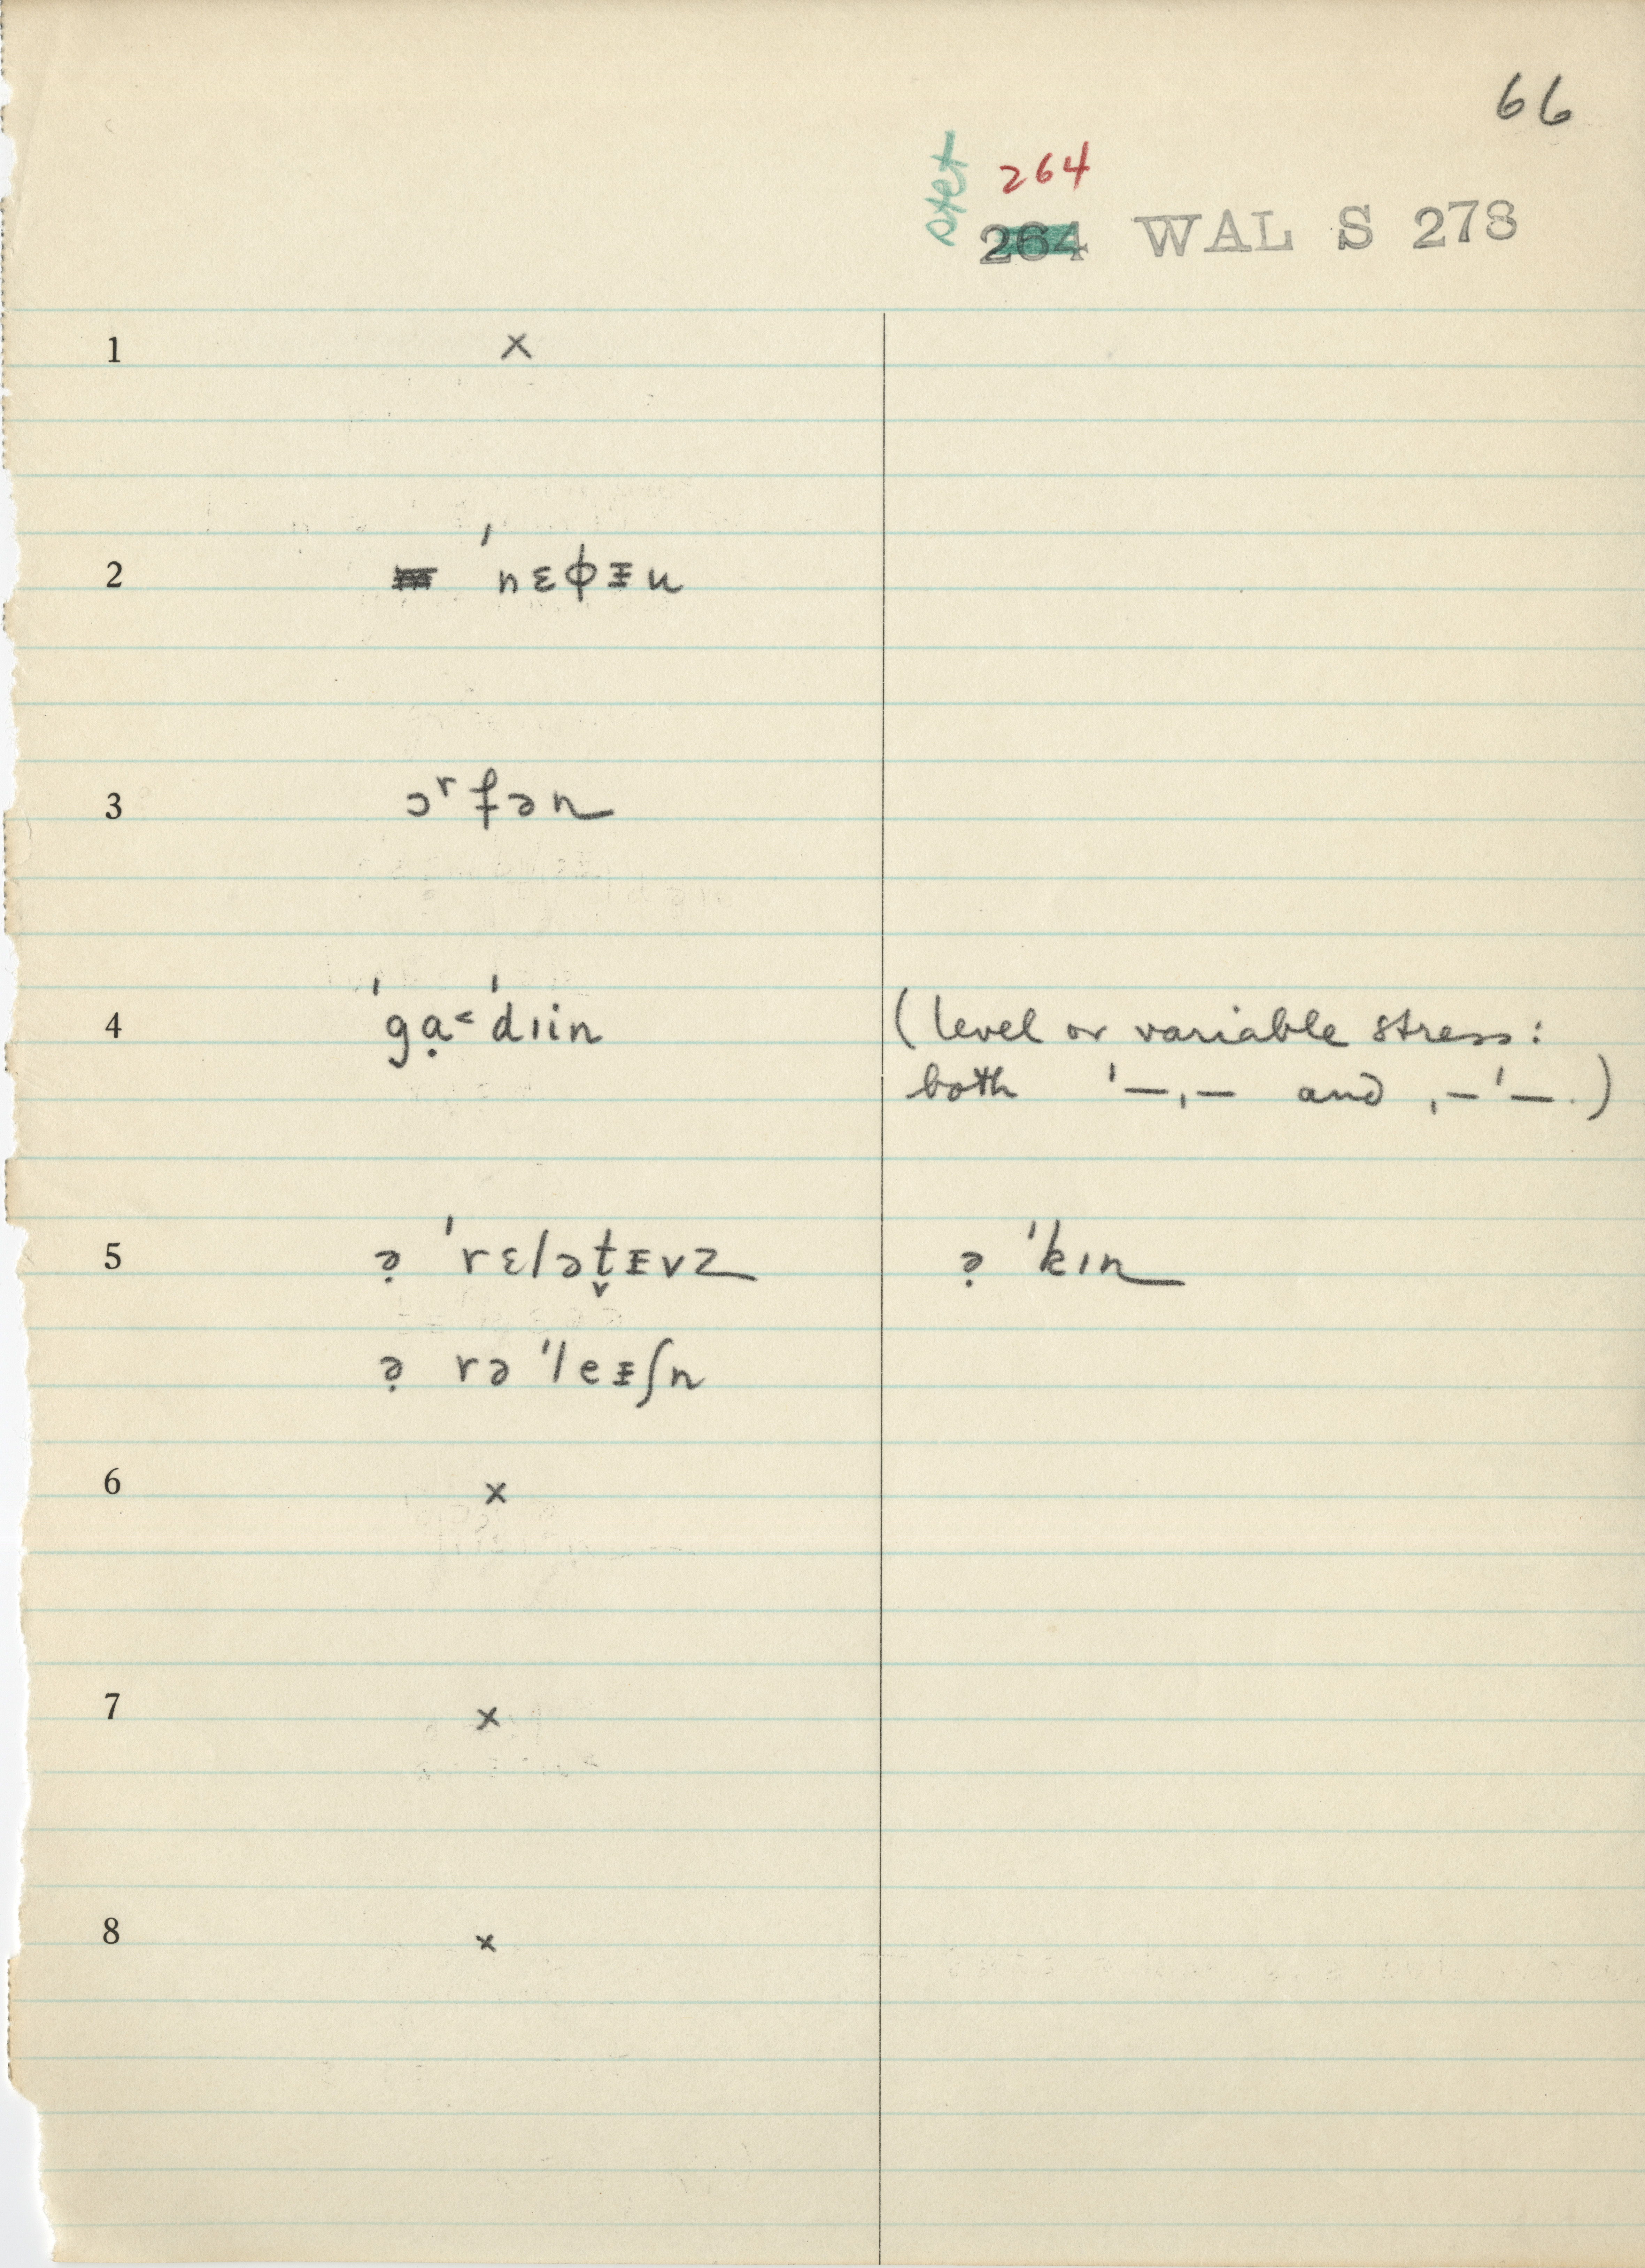 66
stet 264
264 WAL S 273
1 ×
2 ˈnɛɸᵻu
3 ɔʳfən
4 ˈgạ˂ˈdɪin (level or variable stress:
both ˈ—ˌ— and ˌ—ˈ—.)
5 ə̣ ˈrɛlət̬ᵻvz ə̣ ˈkɪn
ə̣ rəˈleᵻʃn
6 ×
7 ×
8 ×